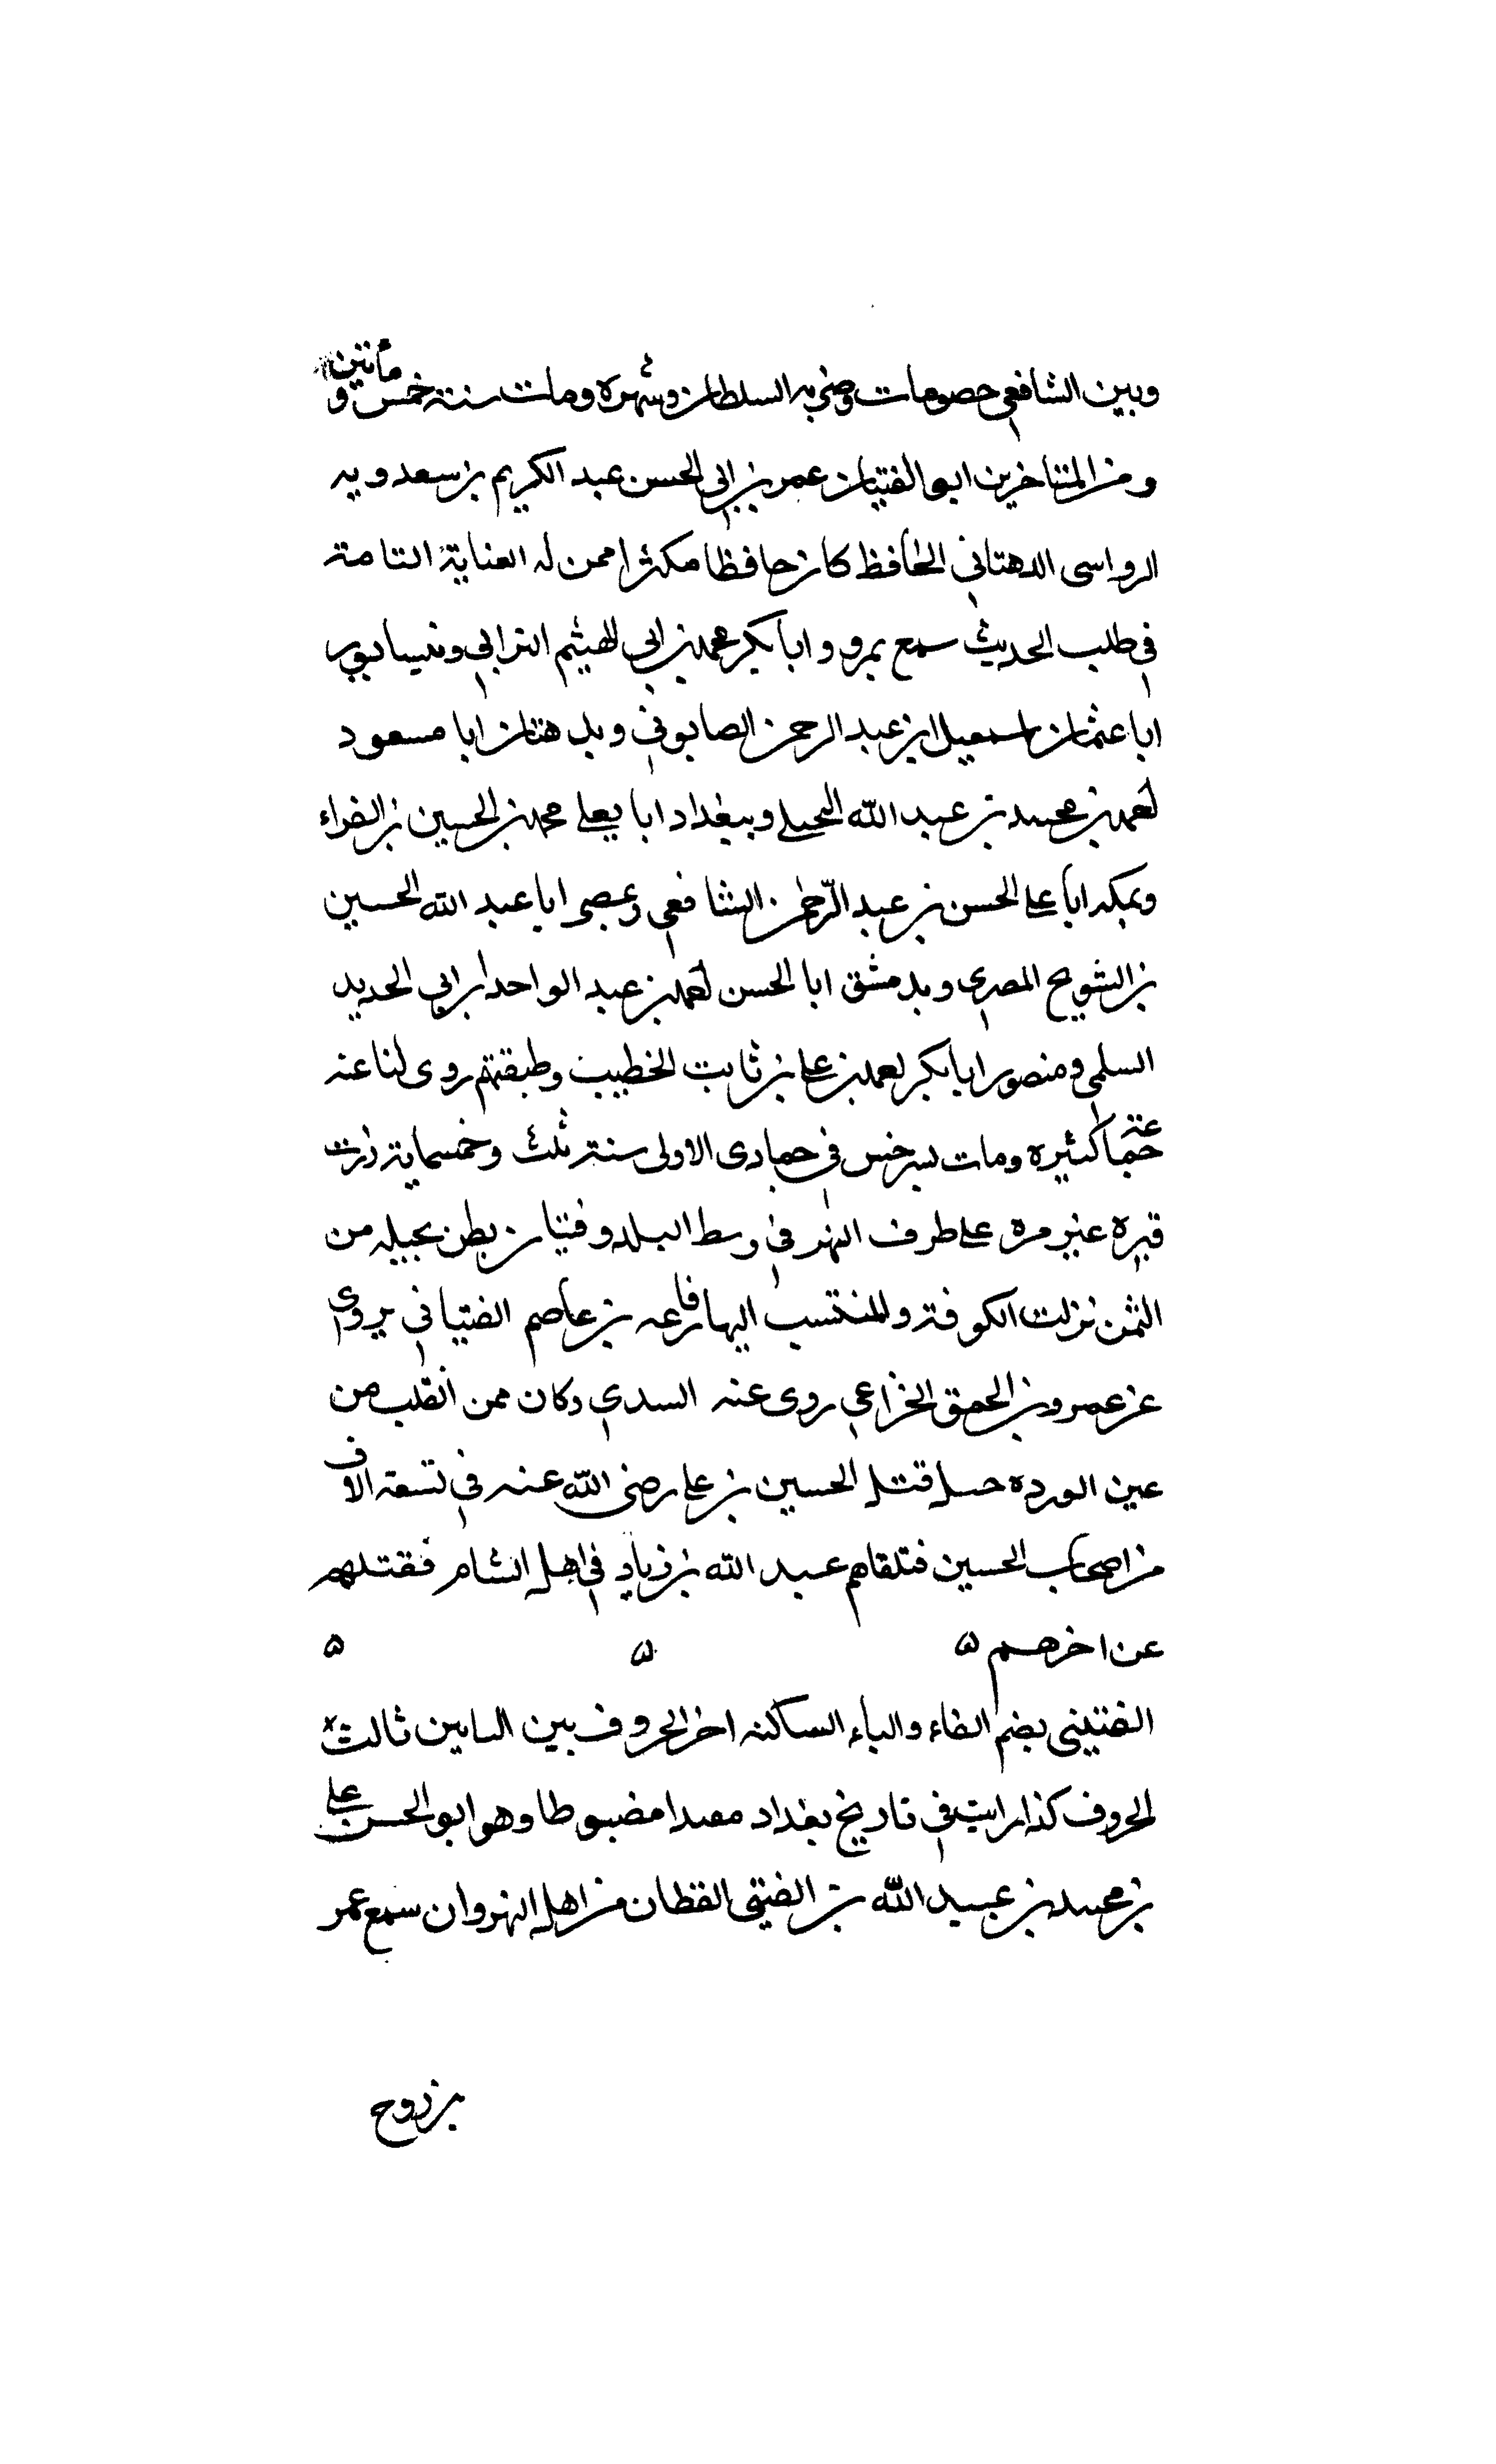 وبين الشافعي خصومات وضربه السلطان وشهره ومات سنة خمس و مأتين
ومن المتاخرين ابو الفتيان عمر بن ابي الحسن عبد الكريم بن سعدويه
الرواسي الدهتاني الحافظ كان حافظا مكثرا ممن له العناية التامة
في طلب الحديث سمع بمرو و ابا بكر محمد بن ابي الهيثم الترابي ونيسابور
ابا عثمان اسمعيل ابن عبد الرحمن الصابوني وبدهتان ابا مسعود
احمد بن محمد بن عبد الله البجلي وببغداد ابا يعلى محمد بن الحسين بن الفراء
وبمكه ابا علي الحسن بن عبد الرحمن الشافعي وبمصر ابا عبد الله الحسين
بن الشويح المصري وبدمشق ابا الحسن احمد بن عبد الواحد بن ابي الحديد
السلمي ومنصور ابا بكر احمد بن علي بن ثابت الخطيب وطبقتهم روى لنا عنه
كثيره ومات بسرخس في جمادى الاولى سنة ثلث وخمسماية زرت
قبره غير مره على طرف النهر في وسط البلد وفتيان بطن بجيله من
اليمن نزلت الكوفة والمنتسب اليها رفاعه بن عاصم الفتياني يروي
عن عمرو بن الحمق الخزاعي روى عنه السدي وكان ممن انقلب من
عين الورده حسل قتله الحسين بن علي رضى الله عنه في تسعة الاف
من اصحاب الحسين فتلقاهم عبد الله بن زياد في اهل الشام فقتلهم
عن اخرهم ۵ ۵ ۵
الفتيني بضم الفاء والياء الساكنه اخر الحروف بين التاين ثالث
الحروف كذا رايت في تاريخ بغداد مقيدا مضبوطا وهو ابو الحسن علي
بن محمد بن عبيد الله بن الفتيتي القطان من اهل النهروان سمع عمر
بن روح